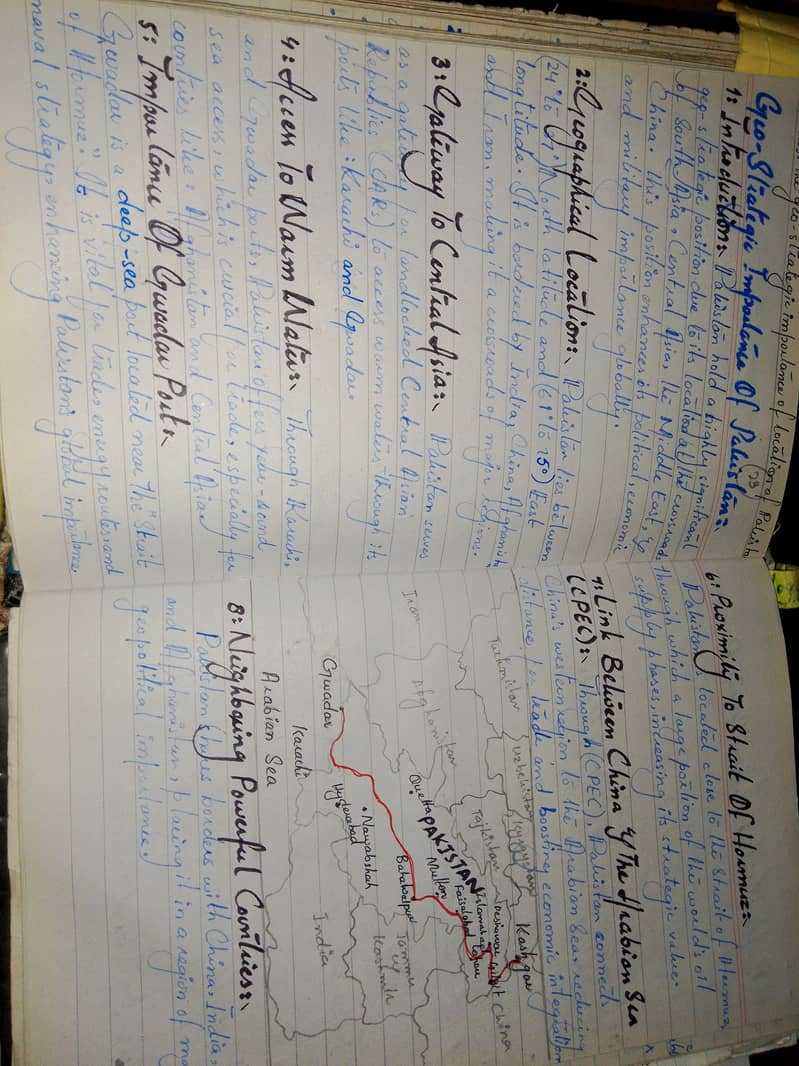 the geo-strategic importance of location of Pakistan
(23)
Geo-Strategic Importance Of Pakistan:
1: Introduction: Pakistan hold a highly significant
geo-strategic position due to its location at the crossroads
of South Asia, Central Asia, the Middle East, &
China. this position enhances its political, economic
and military importance globally.
2: Geographical Location: Pakistan lies between
(24° to North latitude and (61° to 75°) East
longitude. It is bordered by India, China, Afghanist
and Iran, making it a crossroads of major regions.
3: Gateway To Central Asia: Pakistan serves
as a gateway for landlocked Central Asian
Republics (CARs) to access warm waters through its
ports like: Karachi and Gwadar.
4: Access To Warm Water: Through Karachi,
and Gwadar ports, Pakistan offers year-round
sea access, which is crucial for trade, especially for
countries like: Afghanistan and Central Asian
5: Importance Of Gwadar Port:
Gwadar is a deep-sea port located near the "Strait
of Hormuz" It is vital for trade, energy routes and
naval strategy, enhancing Pakistan's global importance.
6: Proximity To Strait Of Hormuz:
Pakistan's located close to the Strait of Hormuz,
through which a large portion of the world's oil
supply phases, increasing its strategic value.
7: Link Between China & The Arabian Sea
(CPEC): Through (CPEC), Pakistan connects
China's western region to the Arabian Sea, reducing
distance for trade and boosting economic integration
Turkmistan
Uzbekistan
Kyrgyzstan
Kashgar
Iran
Afghanistan
Tajkistan
Peshawar
China
Islamabad
Quetta
PAKISTAN
Faisalabad
Multan
Gwadar
Bahawalpur
Jammu
Nawabshah
Kashmir
Hyderabad
Karachi
India
Arabian Sea
8: Neighboring Powerful Countries:
Pakistan shares borders with China, India,
and Afghanistan, placing it in a region of
geopolitical importance.